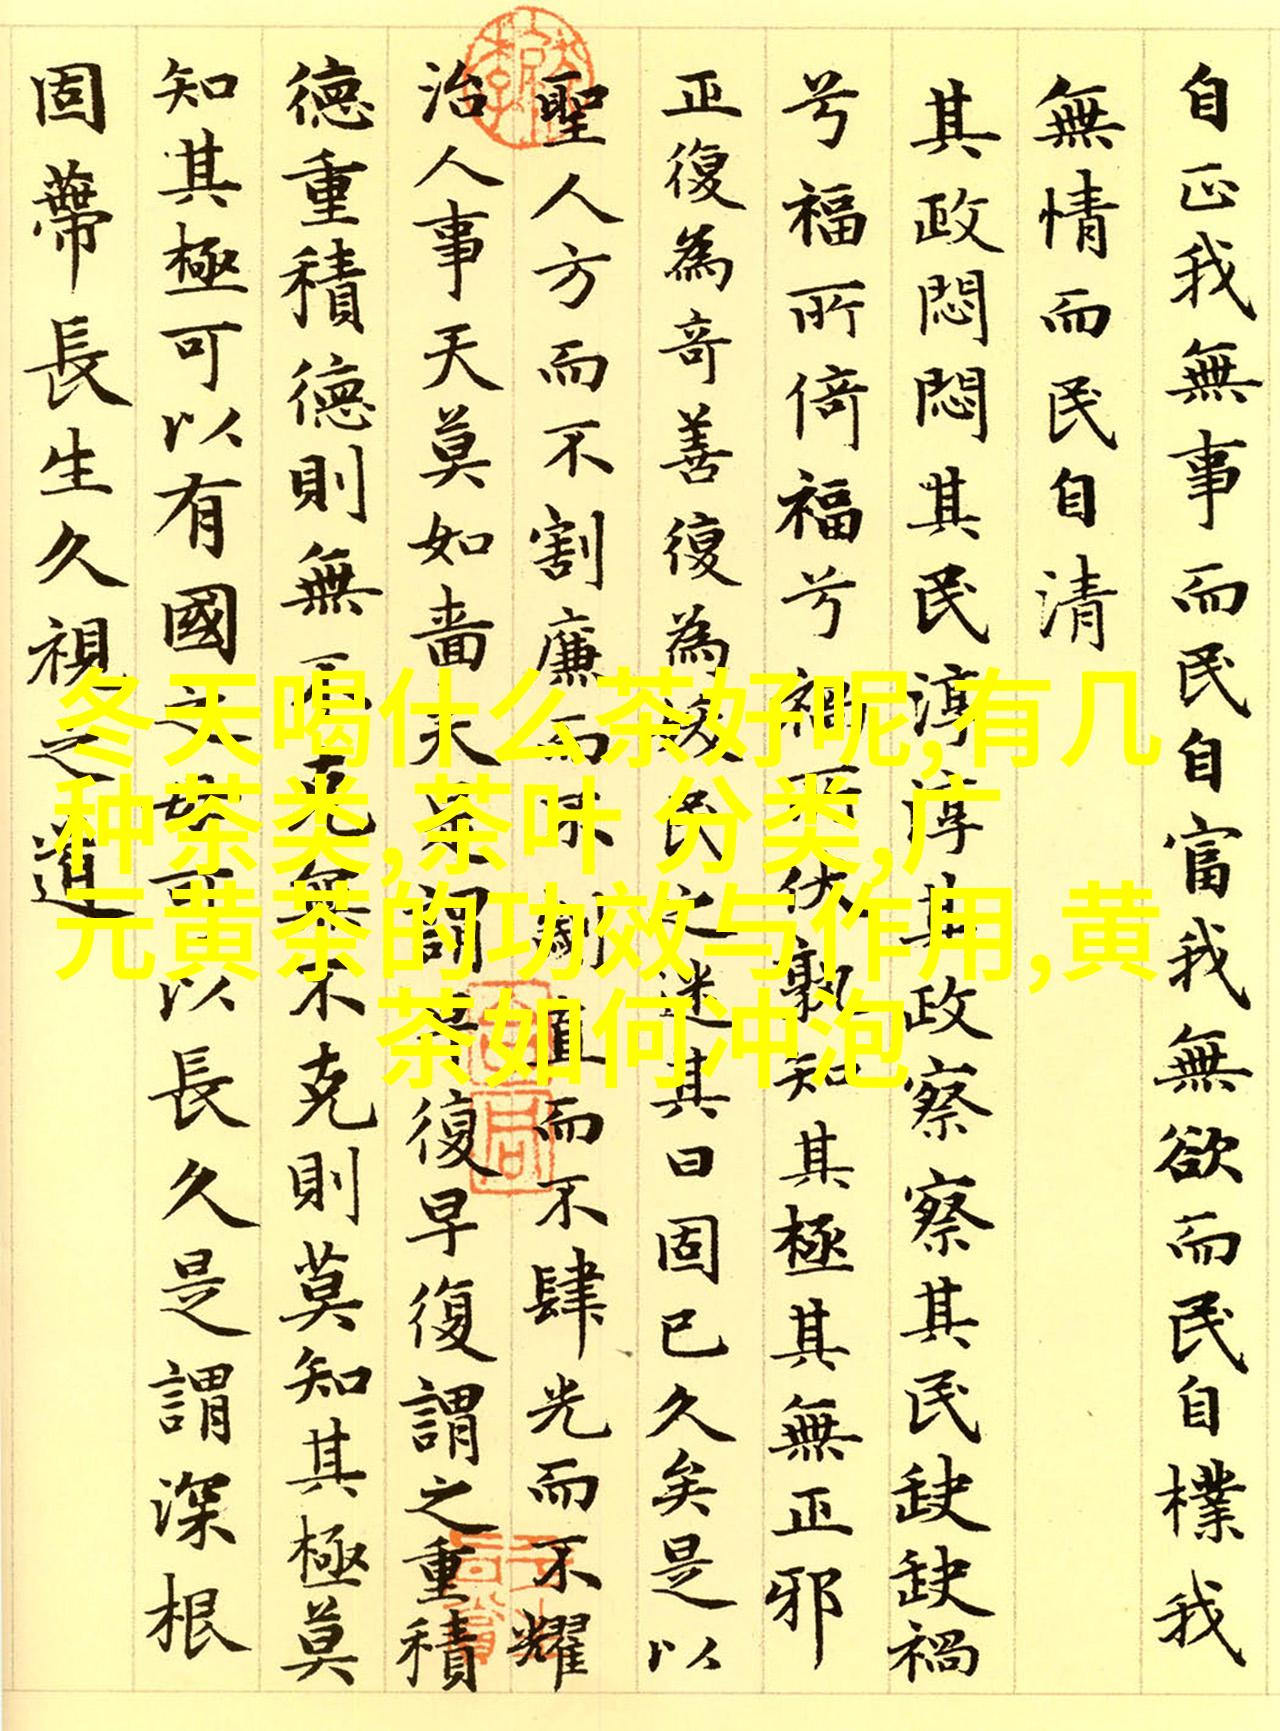 自正我無事而民自富我無欲而民自樸我
無情而民自清
其政悶悶其民淳淳其政察察其民缺缺禍
兮福所倚福兮禍所伏孰知其極其無正邪
正復為奇善復為妖民之迷其曰固已久矣是以
聖人方而不割廉而不劌直而不肆光而不耀
治人事天莫如嗇夫是謂早復早復謂之重積
德重積德則無不克無不克則莫知其極莫
知其極可以有國之母可以長久是謂深根
固蔕長生久視之道
冬天喝什么茶好呢,有几
种茶类,茶叶 分类,广
元黄茶的功效与作用,黄
茶如何冲泡